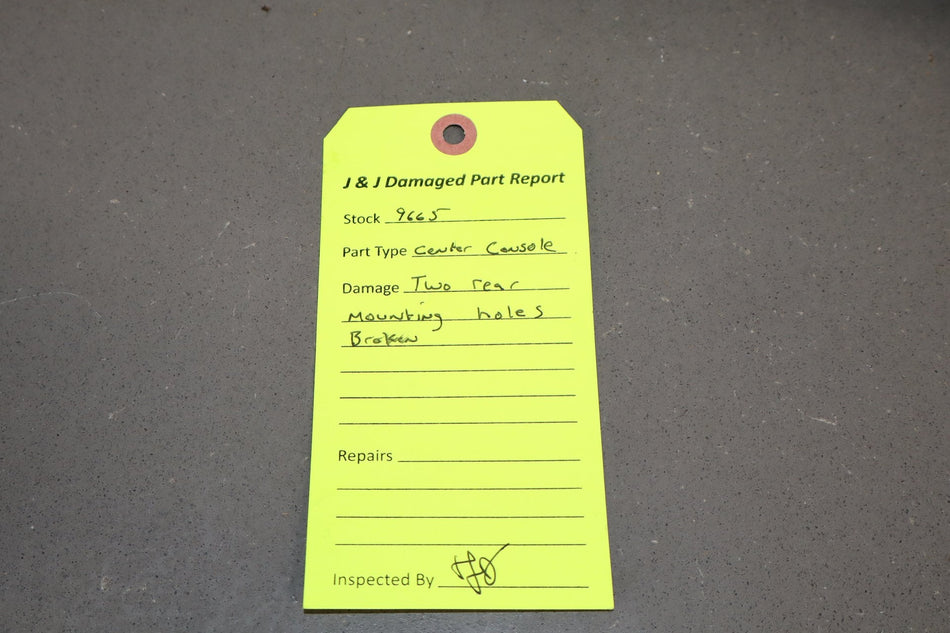 J & J Damaged Part Report
Stock 9665
Part Type Center Console
Damage Two rear
Mounting holes
Broken
Repairs
Inspected By